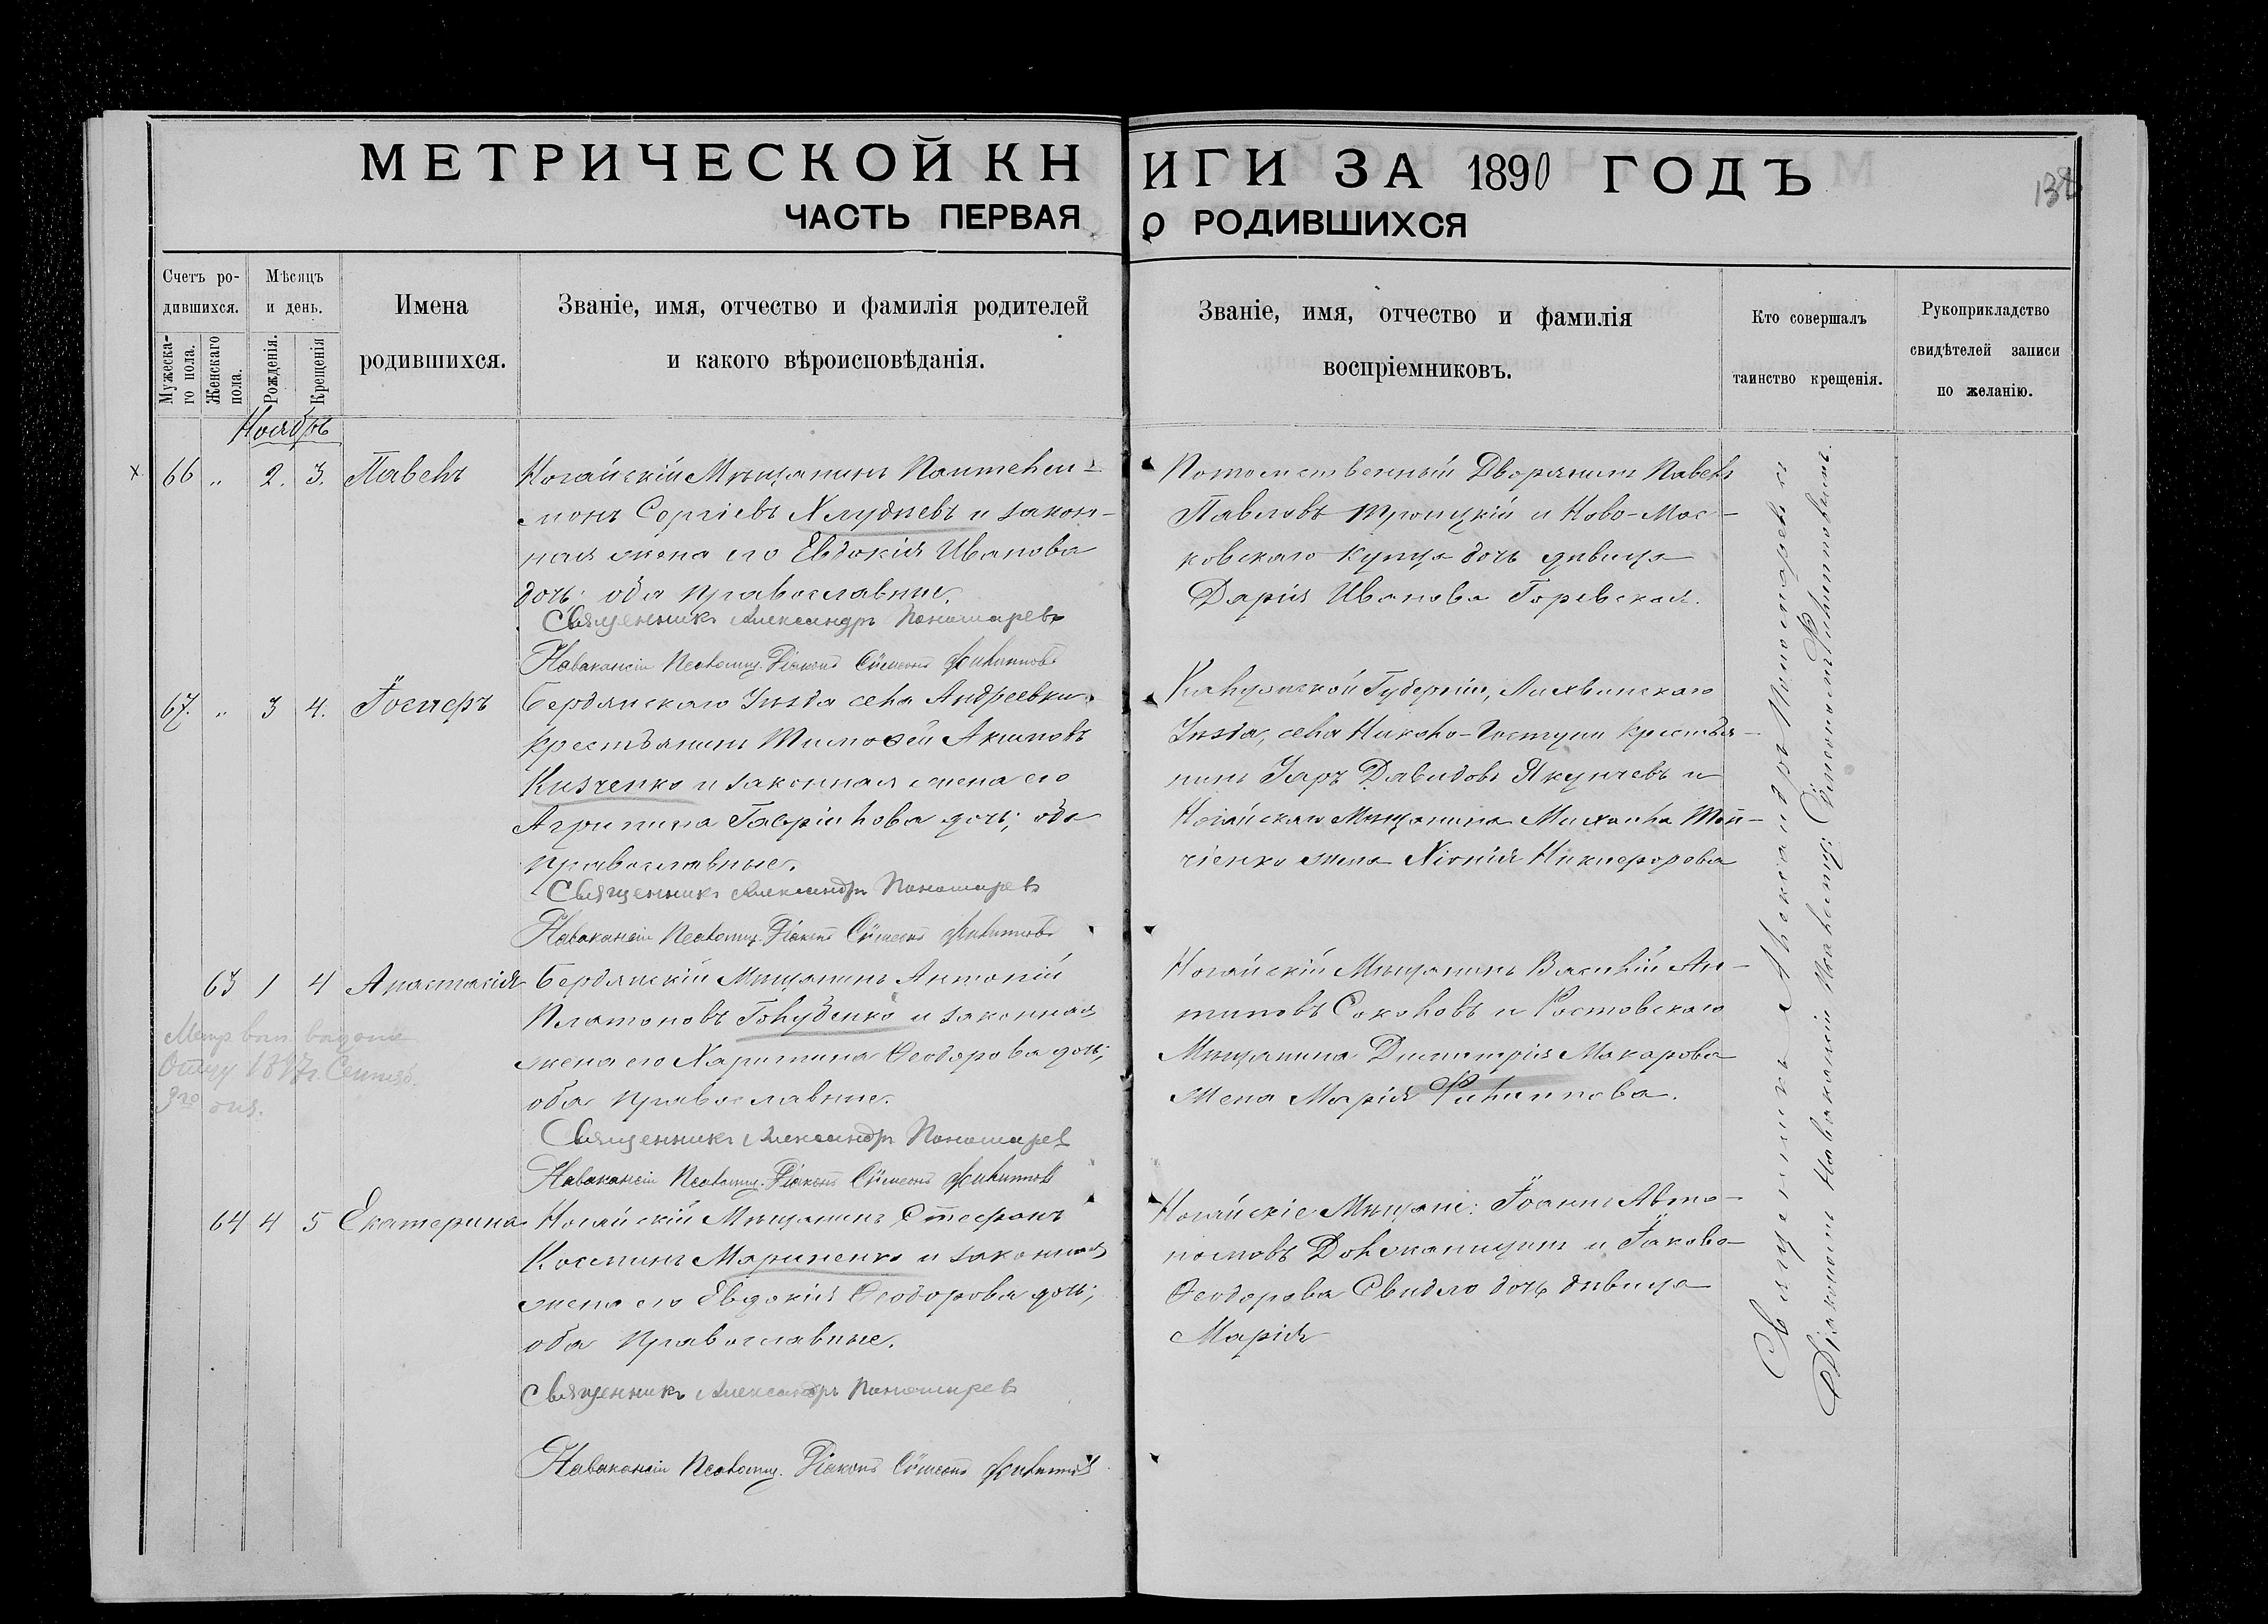 МЕТРИЧЕСКОЙ КНИГИ ЗА 1890 ГОДЪ
ЧАСТЬ ПЕРВАЯ О РОДИВШИХСЯ
Счетъ ро-
дившихся.
Мужеска-
го пола.
Женскаго
пола.
Мѣсяцъ
и день.
Рожденія.
Крещенія
Имена
родившихся.
Званіе, имя, отчество и фамилія родителей
и какого вѣроисповѣданія.
Званіе, имя, отчество и фамилія
воспріемниковъ.
Кто совершалъ
таинство крещенія.
Рукоприкладство
свидѣтелей записи
по желанію.
Ноябрь
66 " 2. 3. Павелъ
Ногайскій Мѣщанинъ Пантелеи-
монъ Сергіевъ Хлудневъ и закон-
ная жена его Евдокія Иванова
дочь; оба православные.
Священникъ Александръ Пономаревъ
На вакансіи Псаломщ. Діаконъ Сѵмеонъ Филипповъ
Потомственный Дворянинъ Павелъ
Павловъ Троицкій и Ново-Мос-
ковскаго купца дочь дѣвица
Дарія Иванова Горевская.
67. " 3 4. Іосифъ
Бердянскаго Уѣзда села Андреевки
крестьянинъ Тимоѳей Акимовъ
Кизченко и законная жена его
Агрипина Гавріилова дочь; оба
православные.
Священникъ Александръ Пономаревъ
На вакансіи Псаломщ. Діаконъ Сѵмеонъ Филипповъ
Калужской Губерніи, Лихвинскаго
Уѣзда, села Николо-Гостуни крестья-
нинъ Уаръ Давидовъ Якунчевъ и
Ногайскаго Мѣщанина Михаила
жена Хіонія Никифорова
63 1 4 Анастасія
Бердянскій Мѣщанинъ Антоній
Платоновъ Голубенко и законная
жена его Харитина Ѳеодорова дочь;
оба православные.
Священникъ Александръ Пономаревъ
На вакансіи Псаломщ. Діаконъ Сѵмеонъ Филипповъ
Ногайскій Мѣщанинъ Василій Ан-
типовъ Соколовъ и Ростовскаго
Мѣщанина Димитрія Макарова
жена Марія Филиппова.
Метр. вып. выдана
Отцу 1897г. Сентяб.
3го дня.
64 4 5 Екатерина
Ногайскій Мѣщанинъ Стефанъ
Косминъ Мариненко и законная
жена его Евдокія Ѳеодорова дочь;
оба православные.
Священникъ Александръ Пономаревъ
На вакансіи Псаломщ. Діаконъ Сѵмеонъ Филипповъ
Ногайскіе Мѣщане: Іоаннъ Авто-
номовъ Должаницынъ и Іакова
Ѳеодорова Свидло дочь дѣвица
Марія
Священникъ Александръ Пономаревъ и
Діаконъ на вакансіи Псаломщ. Сѵмеонъ Филипповъ.